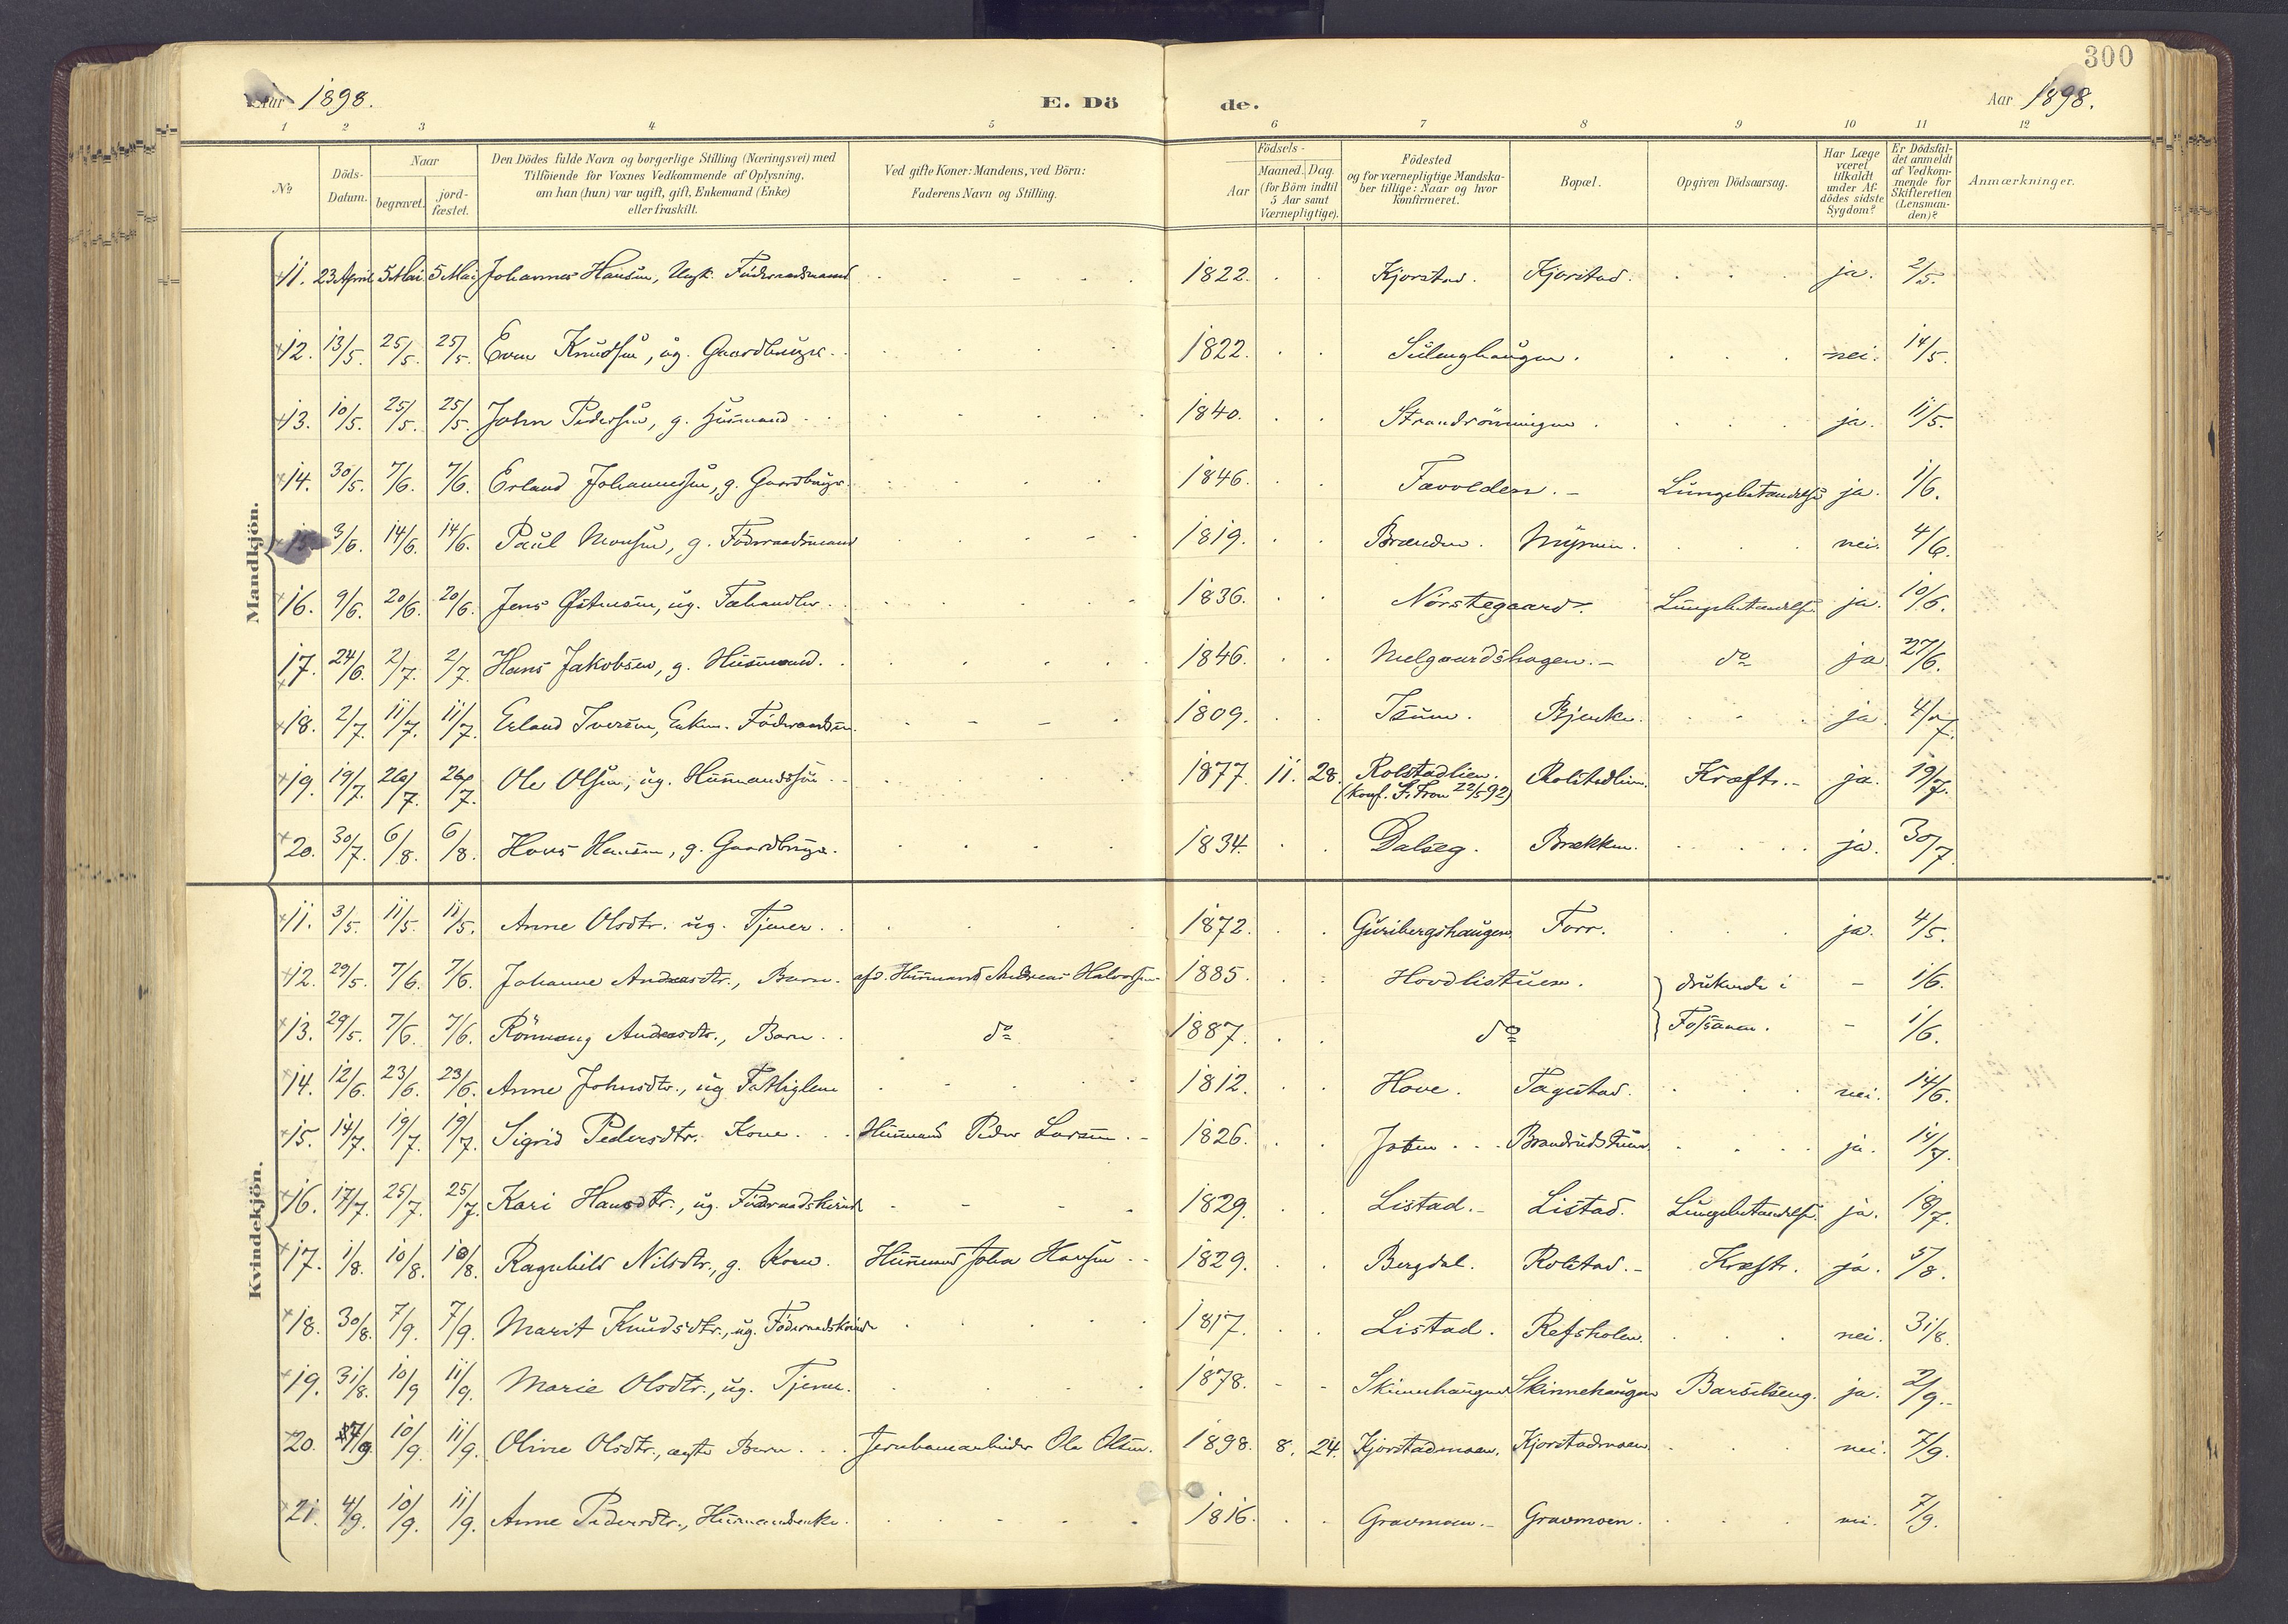 300
Aar 1898. E. Dö de. Aar 1898.
1 2 3 4 5 6 7 8 9 10 11 12
No Döds-Datum. Naar begravet. jord-fæstet. Den Dödes fulde Navn og borgerlige Stilling (Næringsvei) med Tilföiende for Voxnes Vedkommende af Oplysning, om han (hun) var ugift, gift, Enkemand (Enke) eller fraskilt. Ved gifte Koner: Mandens, ved Börn: Faderens Navn og Stilling. Födsels- Aar Maaned. Dag. (for Börn indtil 5 Aar samt Værnepligtige). Födested og for værnepligtige Mandskaber tillige: Naar og hvor konfirmeret. Bopæl. Opgiven Dödsaarsag. Har Læge været tilkaldt under Afdödes sidste Sygdom? Er Dödsfaldet anmeldt af Vedkommende for Skifteretten (Lensmanden)? Anmærkninger.
Mandkjön.
11. 23 April 5 Mai 5 Mai Johannes Hansen, Föderaadsmand 1822. Kjorstad. Kjorstad. ja. 2/5.
12. 13/5. 25/5. 25/5. Even Knudsen, ug. Gaardbruger. 1822. nei. 14/5.
13. 10/5. 25/5. 25/5. John Pedersen, g. Husmand 1840. Strandrönningen. ja. 11/5.
14. 30/5. 7/6. 7/6. Erland Johannessen, g. Gaardbruger. 1846. Tavolden. Lungebetændelse ja. 1/6.
15. 3/6. 14/6. 14/6. Paul Monsen, g. Föderaadsmand 1819. Brenden. Myren. nei. 4/6.
16. 9/6. 20/6. 20/6. Jens Östensen, ug. Fæhandler. 1836. Norstegaard. Lungebetændelse. ja. 10/6.
17. 24/6. 2/7. 2/7. Hans Jakobsen, g. Husmand. 1846. Melgaardshagen. do ja 27/6.
18. 2/7. 11/7. 11/7. Erland Iversen, Enkm. Föderaadsm. 1809. Isum. Bjerke. ja. 4/7.
19. 19/7. 26/7. 26/7. Ole Olsen, ug. Husmandssön 1877. 11. 28. Rolstadlien. (konf. S. Fron 22/5 92) Rolstadlien. Kræft. ja. 19/7.
20. 30/7. 6/8. 6/8. Hans Hansen, g. Gaardbruger. 1834. Dalseg. Brækken. ja. 30/7.
Kvindekjön.
11. 3/5. 11/5. 11/5. Anne Olsdtr. ug. Tjener. 1872. Guribergshaugen. Forr. ja. 4/5.
12. 29/5. 7/6. 7/6. Johanne Andreasdtr., Barn. afd. Husmand Andreas Halvorsen 1885. Hovdlistuen. druknede i - 1/6.
13. 29/5. 7/6. 7/6. Rönnaug Andreasdtr., Barn. do 1887. do Fossaaen. - 1/6.
14. 12/6. 23/6. 23/6. Anne Johnsdtr., ug. Fattiglem 1812. Hove. Tagestad. nei. 14/6.
15. 14/7. 19/7. 19/7. Sigrid Pedersdtr. Kone. Husmand Peder Larsen. 1826. Joten. Brandrudstuen. ja. 14/7.
16. 17/7. 25/7. 25/7. Kari Hansdtr., ug. Föderaadskvinde 1829. Listad. Listad. Lungebetændelse. ja. 18/7.
17. 1/8. 10/8. 10/8. Ragnhild Nilsdtr., g. Kone. Husmand Johan Hansen 1829. Bergdal. Rolstad. Kræft. ja. 5/8.
18. 30/8. 7/9. 7/9. Marit Knudsdtr., ug. Föderaadskvinde 1817. Listad. Refsholen. nei. 31/8.
19. 31/8. 10/9 11/9. Marie Olsdtr., ug. Tjener. 1878. Skinnehaugen Skinnehaugen Barselseng. ja. 2/9.
20. 7/9 10/9. 11/9. Oline Olsdtr., ægte Barn. Jernbanearbeider Ole Olsen. 1898. 8. 24. Kjorstadmoen. Kjorstadmoen nei. 7/9.
21. 4/9. 10/9. 11/9. Anne Pedersdtr., Husmandsenke. 1816. Gravmoen. Gravmoen. nei. 7/9.